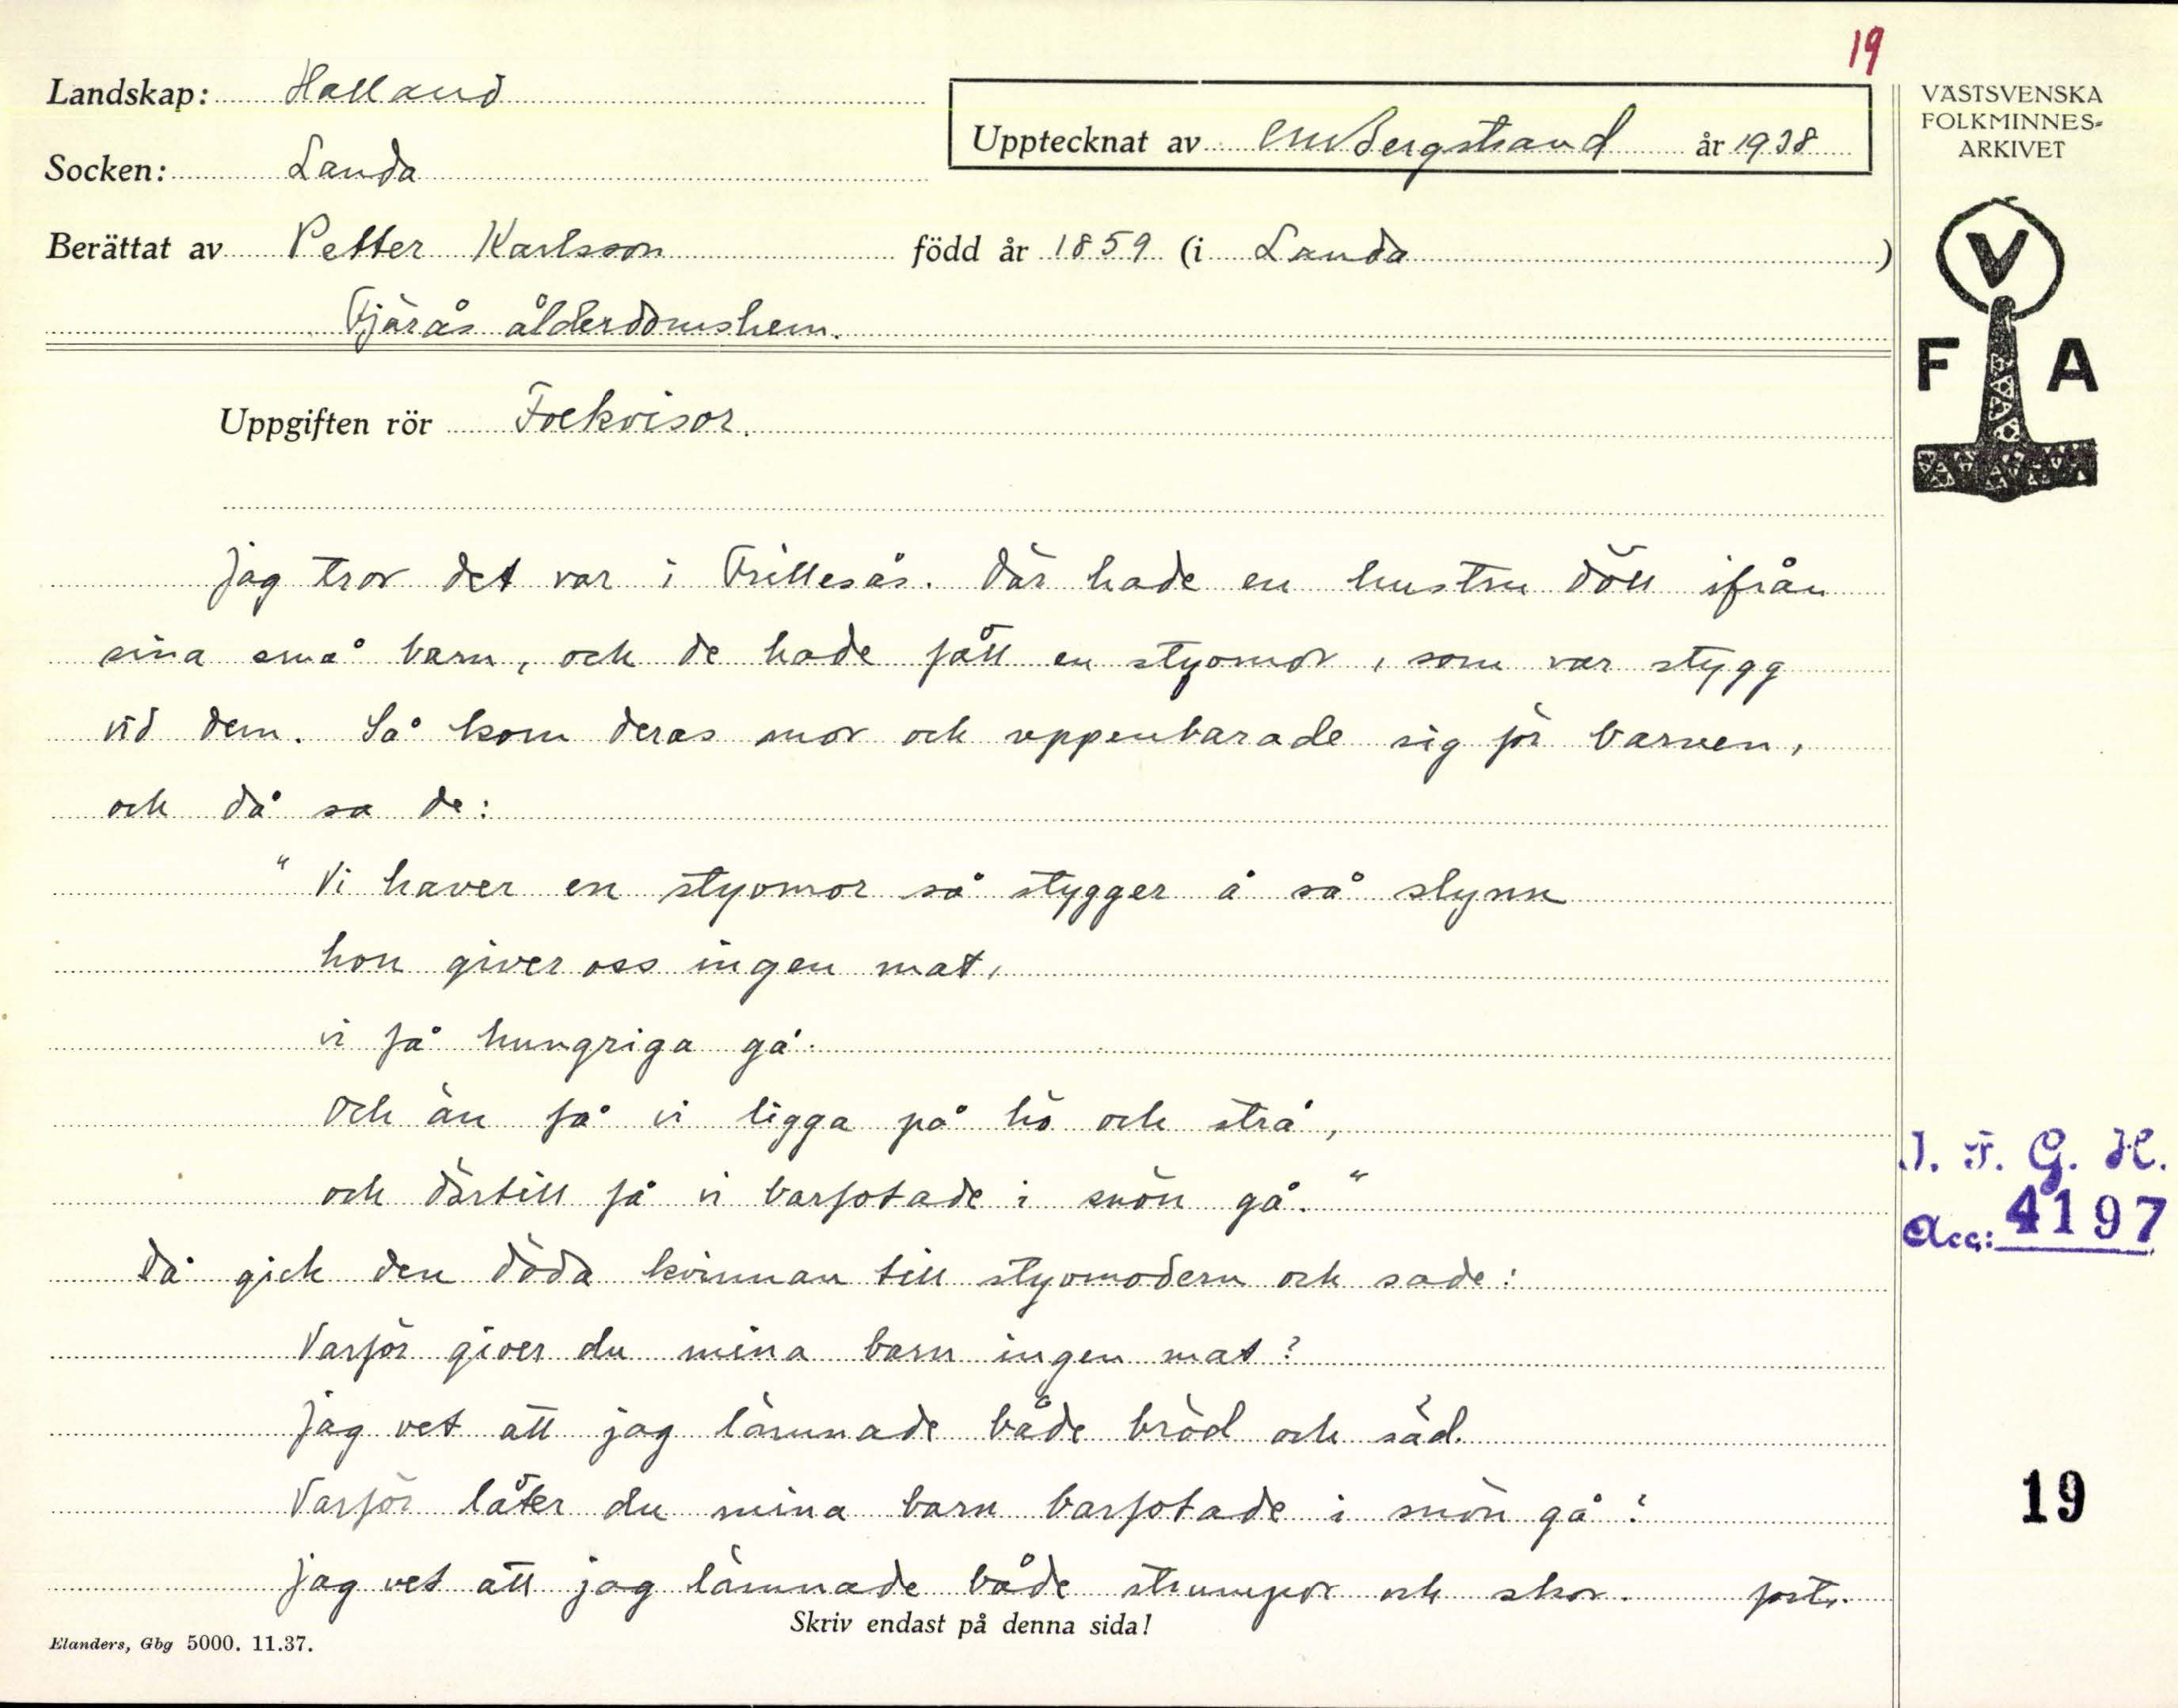 19
Landskap: Halland
Socken: Landa
Upptecknat av CM Bergstrand år 1938
Berättat av Petter Karlsson född år 1859 (i Landa )
Fjärås ålderdomshem.
Uppgiften rör Folkvisor.
Jag tror det var i Frillesås. Där hade en hustru dött ifrån
sina små barn, och de hade fått en styvmor, som var stygg
vid dem. Så kom deras mor och uppenbarade sig för barnen,
och då sa de:
"Vi haver en styvmor så stygger å så slynn
hon giver oss ingen mat,
vi få hungriga gå.
Och än få vi ligga på hö och strå,
och därtill få vi barfotade i snön gå."
Då gick den döda kvinnan till styvmodern och sade:
Varför giver du mina barn ingen mat?
Jag vet att jag lämnade både bröd och säd.
Varför låter du mina barn barfotade i snön gå?
Jag vet att jag lämnade både strumpor och skor. forts.
Skriv endast på denna sida!
Elanders, Gbg 5000. 11.37.
VÄSTSVENSKA
FOLKMINNES-
ARKIVET
V
F A
I. F. G. H.
Acc: 4197
19